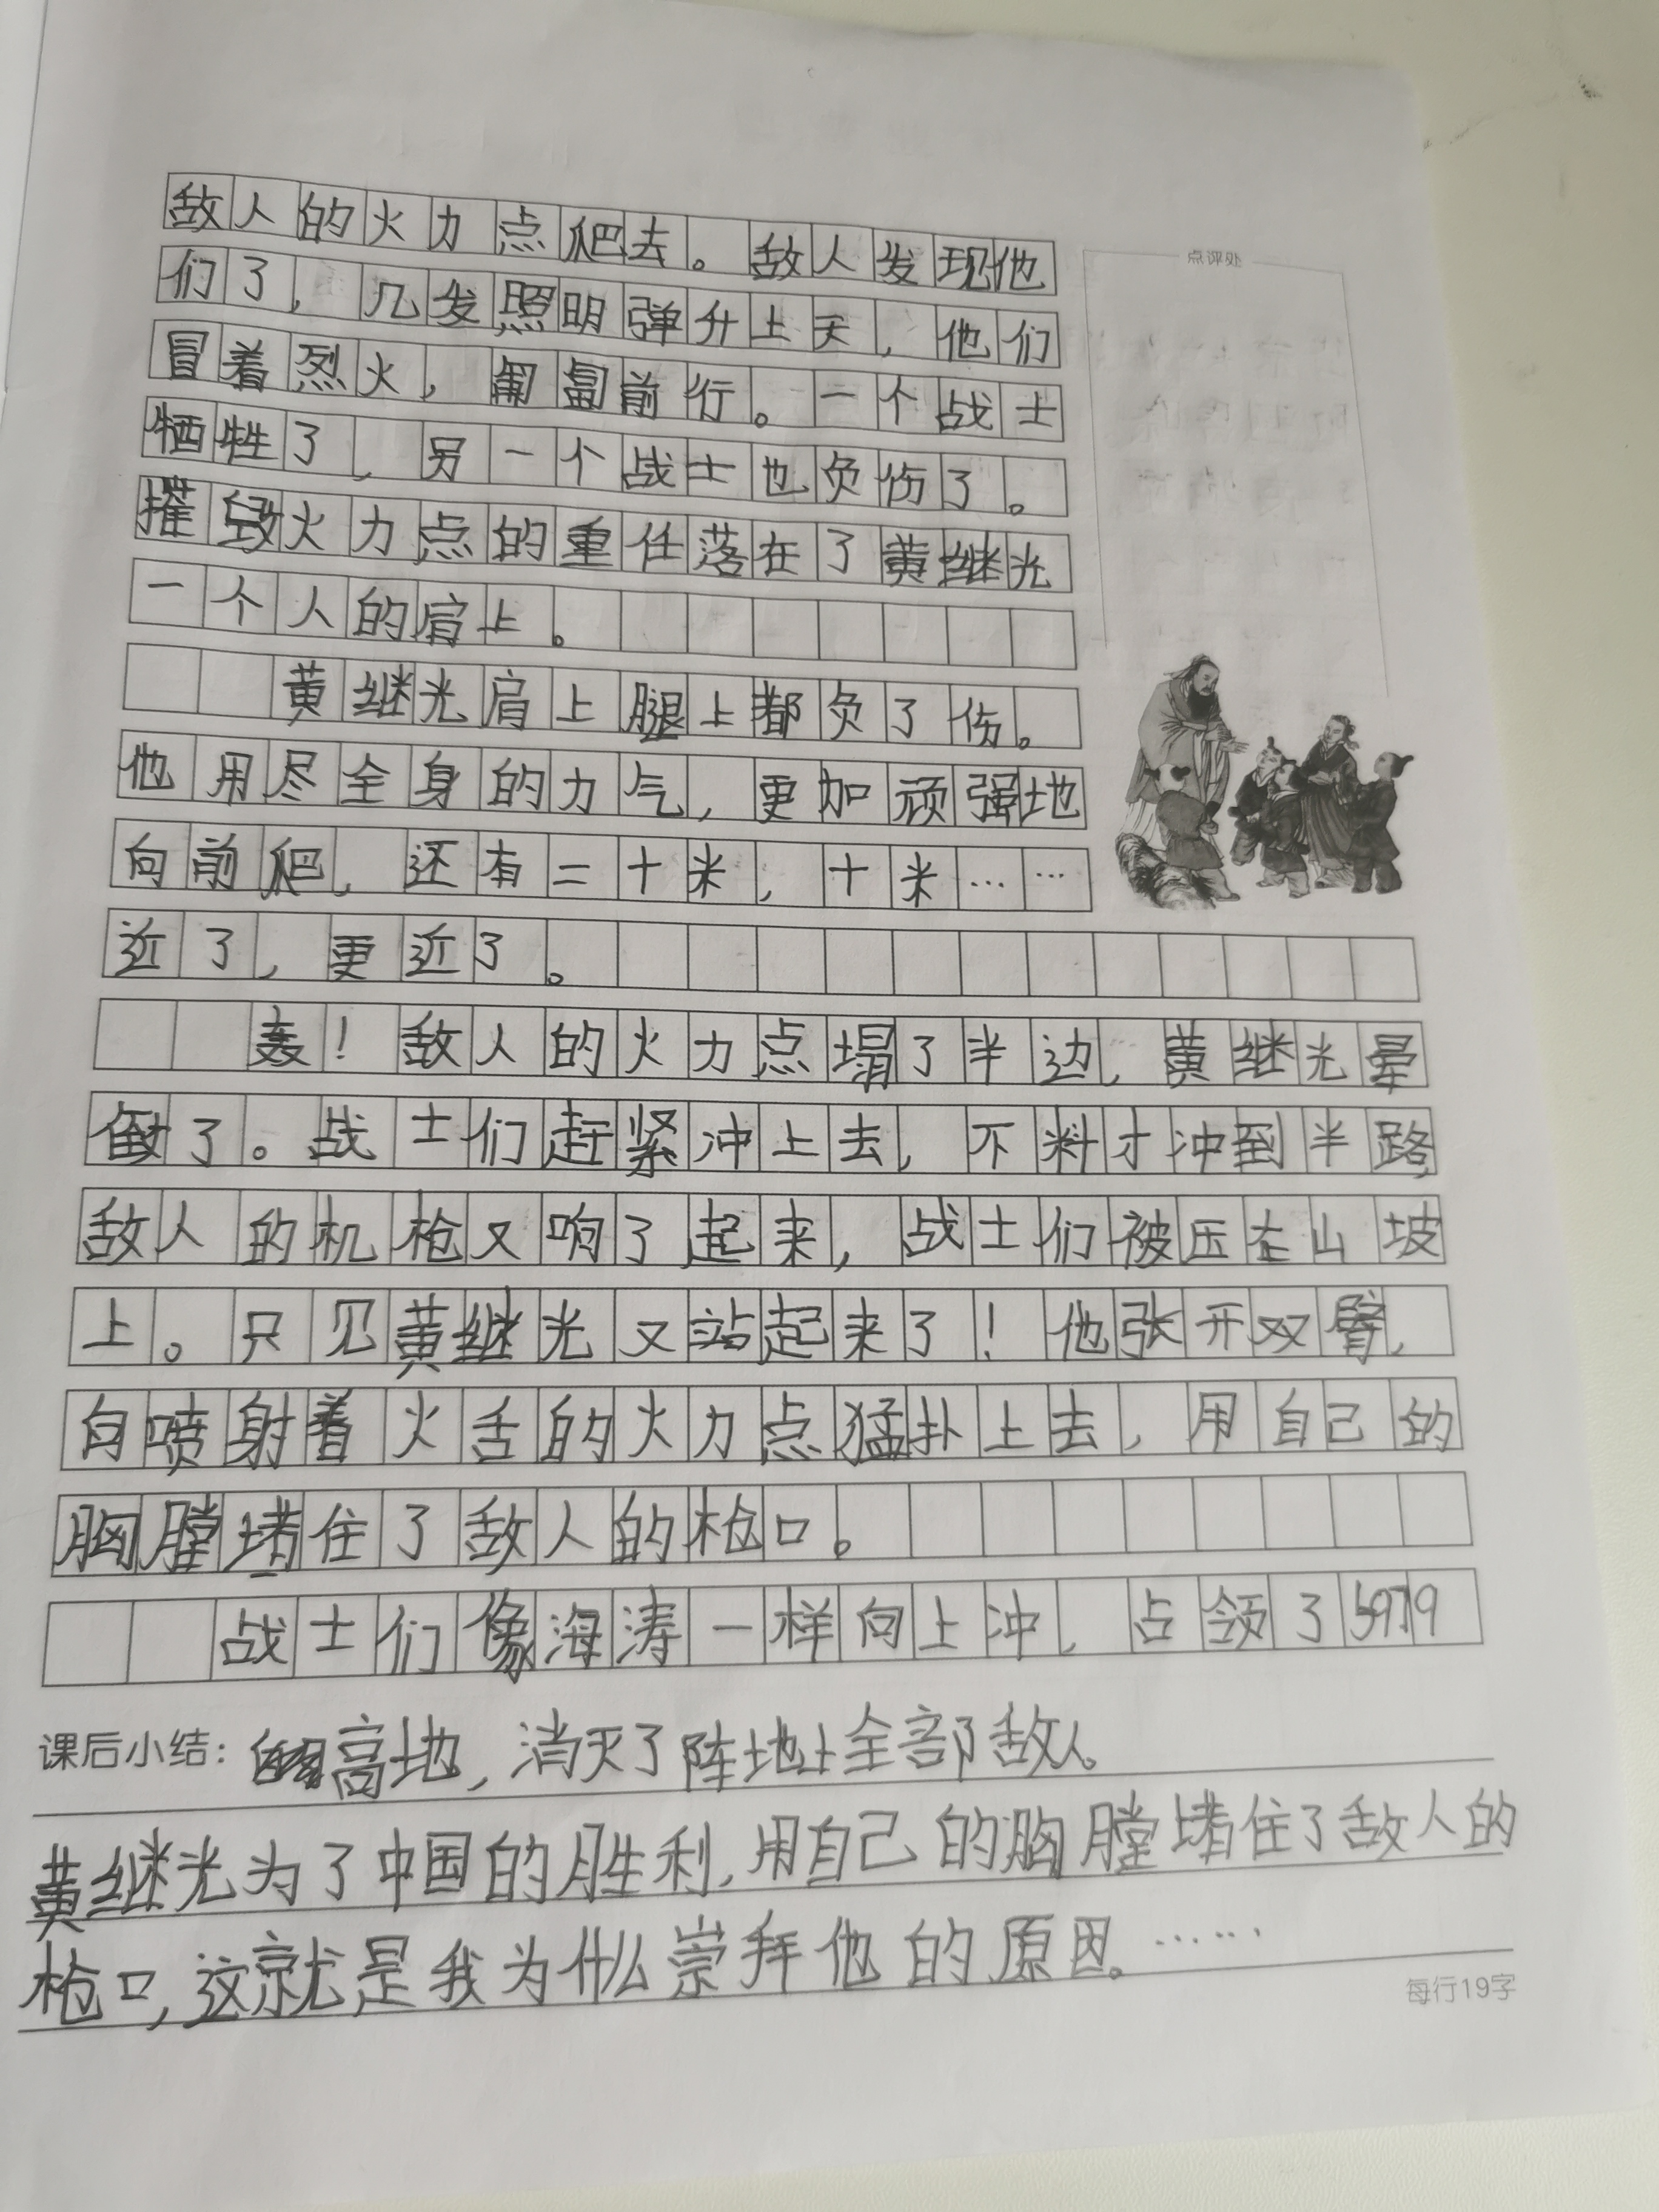 敌人的火力点爬去。敌人发现他
点评处
们了，几发照明弹升上天，他们
冒着烈火，匍匐前行。一个战士
牺牲了，另一个战士也负伤了。
摧毁火力点的重任落在了黄继光
一个人的肩上。
黄继光肩上腿上都负了伤。
他用尽全身的力气，更加顽强地
向前爬，还有二十米，十米……
近了，更近了。
轰！敌人的火力点塌了半边，黄继光晕
倒了。战士们赶紧冲上去，不料才冲到半路，
敌人的机枪又响了起来，战士们被压在山坡
上。只见黄继光又站起来了！他张开双臂，
向喷射着火舌的火力点猛扑上去，用自己的
胸膛堵住了敌人的枪口。
战士们像海涛一样向上冲，占领了597.9
课后小结：高地，消灭了阵地上全部敌人。
黄继光为了中国的胜利，用自己的胸膛堵住了敌人的
枪口，这就是我为什么崇拜他的原因。……
每行19字